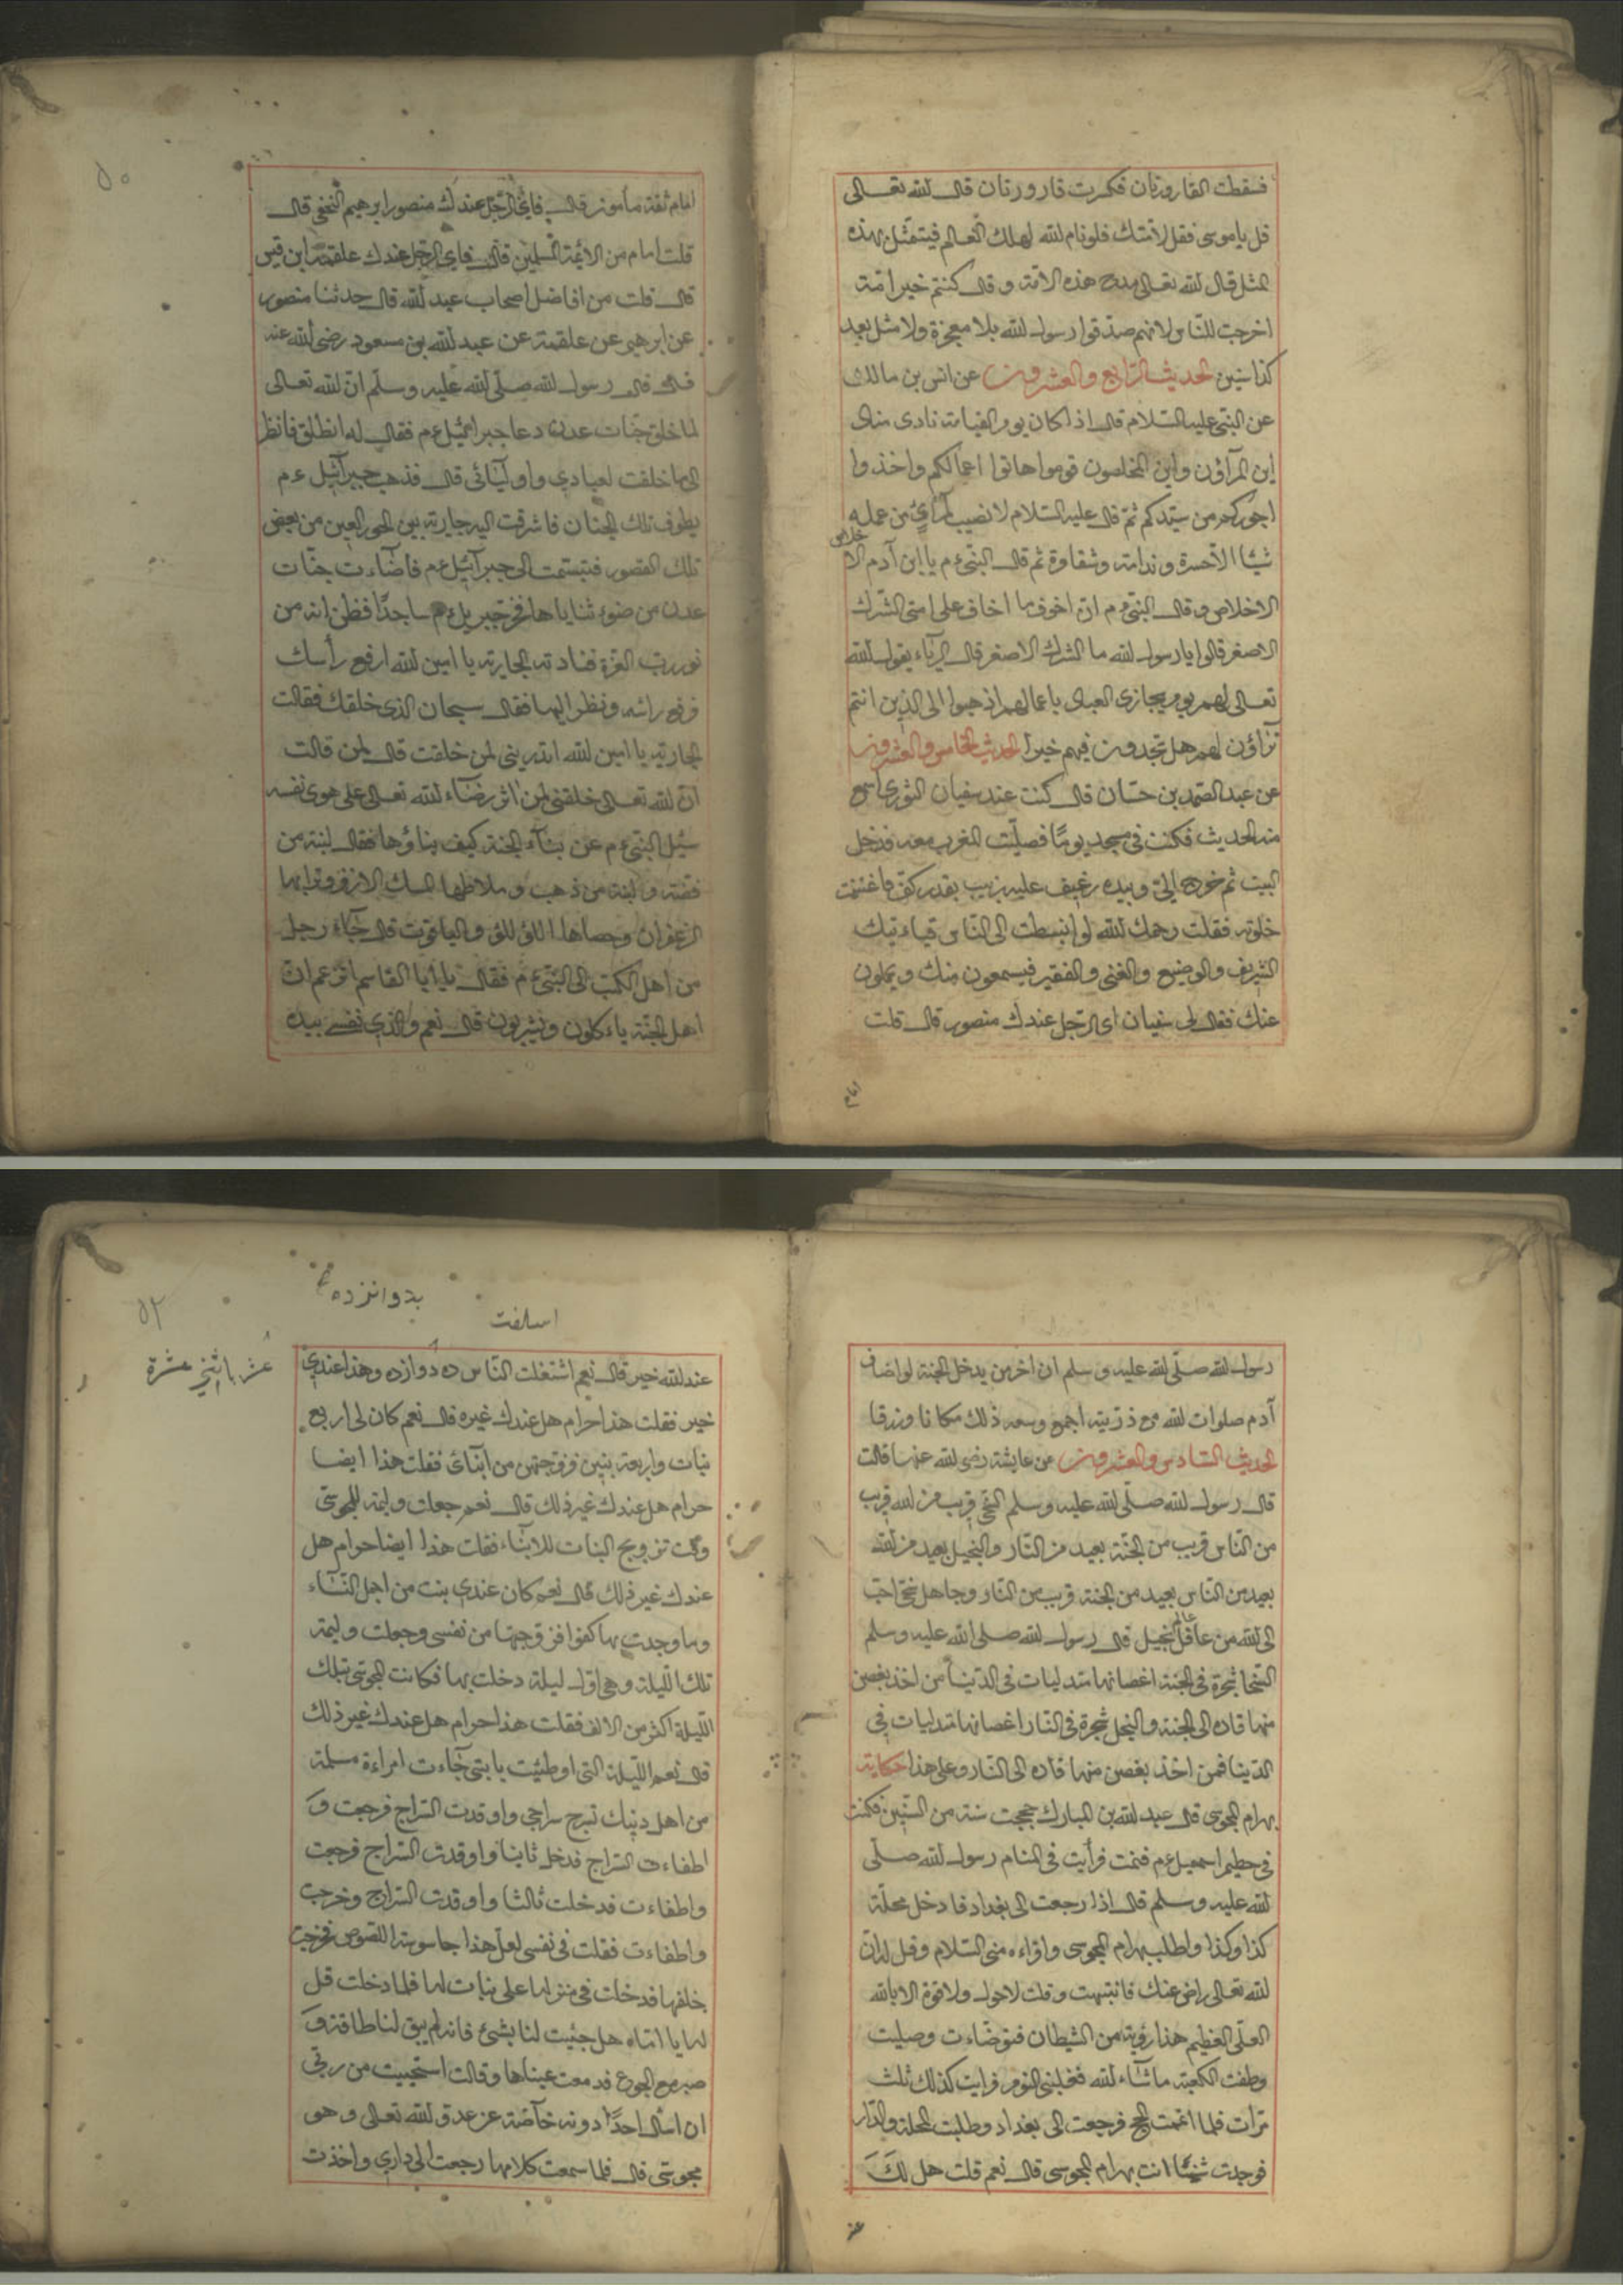 فسقطت القارورتان فكسرت قارورتان قال الله تعالى
قل يا موسى فقل لامتك فلو نام الله لهلك العالم فيتمثل بهذه
المثل قال الله تعالى مدح هذه الامة وقال كنتم خير امة
اخرجت للناس لانهم صدقوا رسول الله بلا معجزة ولا مثل بعد
كذا سنين الحديث الرابع والعشرون عن انس بن مالك
عن النبي عليه السلام قال اذا كان يوم القيامة نادى مناد
اين المرآؤن واين المخلصون قوموا هاتوا اعمالكم واخذوا
اجوركم من سيدكم ثم قال عليه السلام لا نصيب لمرآئ من عمله
شيئا الا حسرة وندامة وشقاوة ثم قال النبي ءم يا ابن آدم
خلاص
الاخلاص وقال النبي ءم ان اخوف ما اخاف على امتى الشرك
الاصغر قالوا يا رسول الله ما الشرك الاصغر قال الرياء يقول الله
تعالى لهم يوم يجازى العباد باعمالهم اذهبوا الى الذين انتم
ترآؤن لهم هل تجدون فيهم خيرا الحديث الخامس والعشرون
عن عبد الصمد بن حسان قال كنت عند سفيان الثورى اسمع
منه الحديث فكنت فى مسجد يوما فصليت المغرب معه فدخل
البيت ثم خرج الىّ وبيده رغيف عليه زبيب بقدر كف فاغتنمت
خلوته فقلت رحمك الله لو انبسطت الى الناس فياءتيك
الشريف والوضيع والغنى والفقير فيسمعون منك ويملون
عنك فقال لى سفيان اى الرجل عندك منصور قال قلت
امام
٥٠
امام ثقة مأمون قال فاى الرجل عندك منصور ابرهيم النخعى قال
قلت امام من الائمة المسلمين قال فاى الرجل عندك علقمة ابن قيس
قال قلت من افاضل اصحاب عبد الله قال حدثنا منصور
عن ابرهيم عن علقمة عن عبد الله بن مسعود رضى الله عنه
قال قال رسول الله صلى الله عليه وسلم ان الله تعالى
لما خلق جنات عدن دعا جبرائيل ءم فقال له انطلق فانظر
الى ما خلقت لعبادي واوليائى قال فذهب جبرآئيل ءم
يطوف تلك الجنان فاشرقت اليه جارية من الحور العين من بعض
تلك القصور فتبسمت الى جبرآئيل ءم فاضاءت جنات
عدن من ضوء ثناياها فخر جبريل ءم ساجدا فظن انه من
نور رب العزة فنادته الجارية يا امين الله ارفع رأسك
فرفع رأسه ونظر اليها فقال سبحان الذى خلقك فقالت
الجارية يا امين الله اتدرينى لمن خلقت قال لمن قالت
ان الله تعالى خلقنى لمن اثر رضاء الله تعالى على هوى نفسه
سئل النبي ءم عن بناء الجنة كيف بناؤها فقال لبنة من
فضة ولبنة من ذهب وملاطها المسك الازفر وترابها
الزعفران وحصاها اللؤلؤ والياقوت قال جاء رجل
من اهل الكتب الى النبي ءم فقال يا ابا القاسم اتزعم ان
اهل الجنة ياءكلون ويشربون قال نعم والذى نفسى بيده
رسول الله صلى الله عليه وسلم ان اخر من يدخل الجنة لو اضاف
آدم صلوات الله مع ذريته اجمع وسعه ذلك مكانا ورزقا
الحديث السادس والعشرون عن عايشة رضى الله عنها قالت
قال رسول الله صلى الله عليه وسلم السخى قريب من الله قريب
من الناس قريب من الجنة بعيد من النار والبخيل بعيد من الله
بعيد من الناس بعيد من الجنة قريب من النار وجاهل سخى احب
الى الله من عاقل بخيل قال رسول الله صلى الله عليه وسلم
عالم
السخا شجرة فى الجنة اغصانها متدليات فى الدنيا من اخذ بغصن
منها قاده الى الجنة والبخل شجرة فى النار اغصانها متدليات فى
الدنيا فمن اخذ بغصن منها قاده الى النار وعلى هذا حكاية
بهرام المجوسى قال عبد الله بن المبارك حججت سنة من السنين فكنت
فى حطيم اسمعيل ءم فنمت فرأيت فى المنام رسول الله صلى
الله عليه وسلم قال اذا رجعت الى بغداد فادخل محلة
كذا وكذا واطلب بهرام المجوسى واقراءه منى السلام وقل له ان
الله تعالى راض عنك فانتبهت وقلت لا حول ولا قوة الا بالله
العلى العظيم هذا رؤية من الشيطان فتوضاءت وصليت
وطفت الكعبة ماشاء الله فغلبنى النوم فرايت كذلك ثلث
مرات فلما اتممت الحج فرجعت الى بغداد وطلبت المحلة والدار
فوجدت شيخا انت بهرام المجوسى قال نعم قلت هل لك
عند
٥٢
بدوانزده
اسلفت
عشر باثنى عشرة
عند الله خير قال نعم اشتغلت الناس ده دوازده وهذا عندي
خير فقلت هذا حرام هل عندك غيره قال نعم كان لى اربع
بنات واربعة بنين فزوجتهن من ابنائ فقلت هذا ايضا
حرام هل عندك غير ذلك قال نعم جعلت وليمة للمجوسى
وقت تزويج البنات للابناء فقلت هذا ايضا حرام هل
عندك غير ذلك قال نعم كان عندي بنت من اجمل النساء
وما وجدت بها كفوا فزوجتها من نفسى وجعلت وليمة
تلك الليلة وهى اول ليلة دخلت بها فكانت المجوسى بتلك
الليلة اكثر من الالف فقلت هذا حرام هل عندك غير ذلك
قال نعم الليلة التى اوطئت يا بنتى جآءت امراءة مسلمة
من اهل دينك تسرج سراجى واوقدت السراج فرجعت و
اطفاءت السراج فدخل ثانيا واوقدت السراج فرجعت
واطفاءت فدخلت ثالثا واوقدت السراج وخرجت
واطفاءت فقلت فى نفسى لعل هذا جاسوسة اللصوص فخرجت
خلفها فدخلت فى منزلها على بنات لها فلما دخلت قلن
لها يا اماه هل جئيت لنا بشئ فانه لم يبق لنا طاقة و
صبر مع الجوع فدمعت عيناها وقالت استحييت من ربى
ان اسأل احدا دونه خآصة عن عدو الله تعالى وهو
مجوسى قال فلما سمعت كلامها رجعت الى دارى واخذت